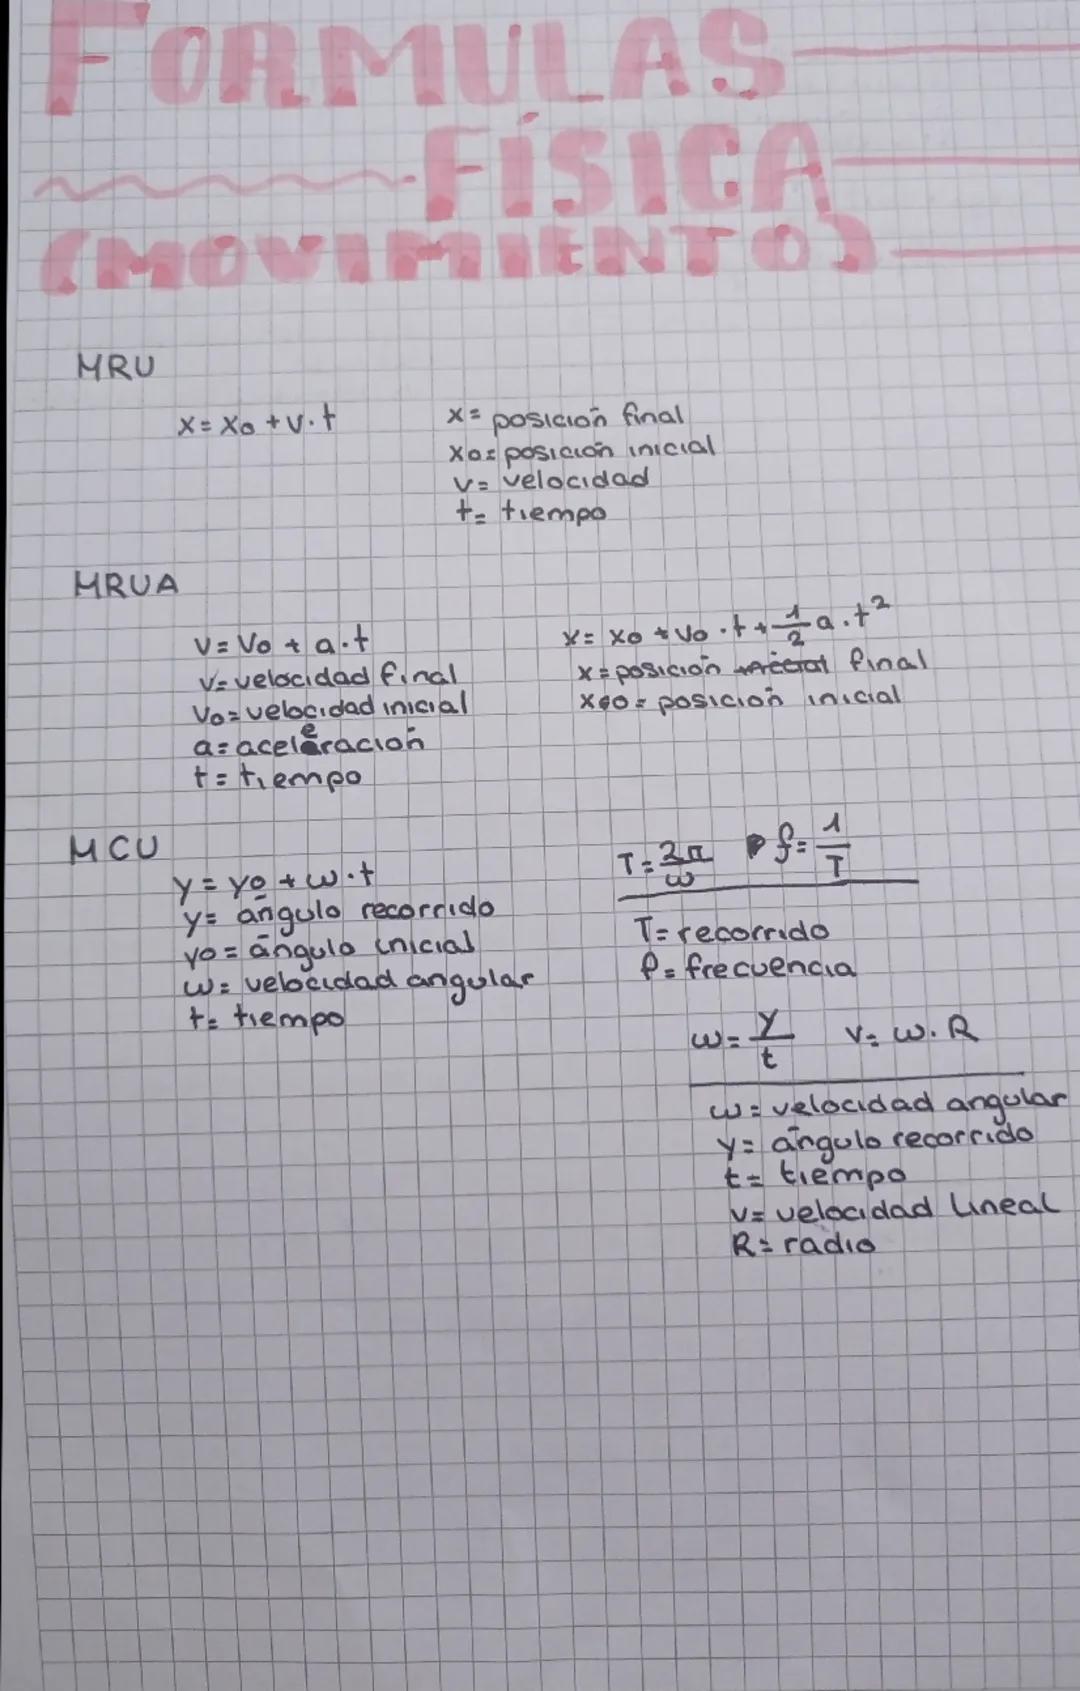 FORMULAS
FÍSICA
(MOVIMIENTO)
MRU
x = x0 + v · t
x = posición final
x0 = posición inicial
v = velocidad
t = tiempo
MRUA
v = v0 + a · t
v = velocidad final
v0 = velocidad inicial
a = aceleración
t = tiempo
x = x0 + v0 · t + 1/2 a · t²
x = posición final
x0 = posición inicial
MCU
y = y0 + ω · t
y = ángulo recorrido
y0 = ángulo inicial
ω = velocidad angular
t = tiempo
T = 2π/ω f = 1/T
T = recorrido
f = frecuencia
ω = y/t v = ω · R
ω = velocidad angular
y = ángulo recorrido
t = tiempo
v = velocidad lineal
R = radio